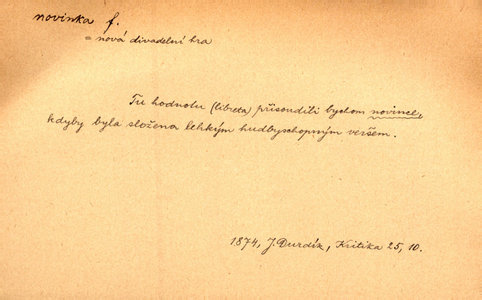 novinka f.
= nová divadelní hra
Tu hodnotu (libreta) přisoudili bychom novince,
kdyby byla složena lehkým hudbyschopným veršem.
1874, J. Durdík, Kritika 25, 10.